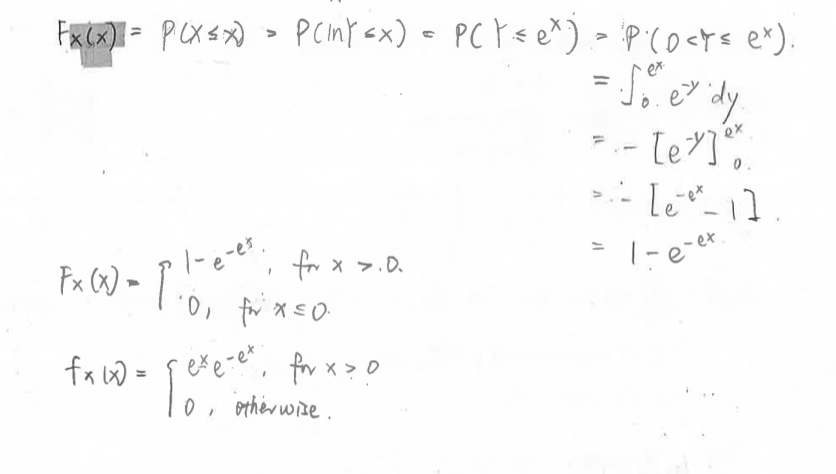 Fx(x) = P(X ≤ x) = P(lnY ≤ x) = P(Y ≤ e^x) = P(0 < Y ≤ e^x).
= ∫_0^{e^x} e^{-y} dy
= - [e^{-y}]_0^{e^x}
= - [e^{-e^x} - 1].
= 1 - e^{-e^x}
Fx(x) = { 1 - e^{-e^x}, for x > 0.
0, for x ≤ 0.
fx(x) = { e^x e^{-e^x}, for x > 0
0, otherwise.